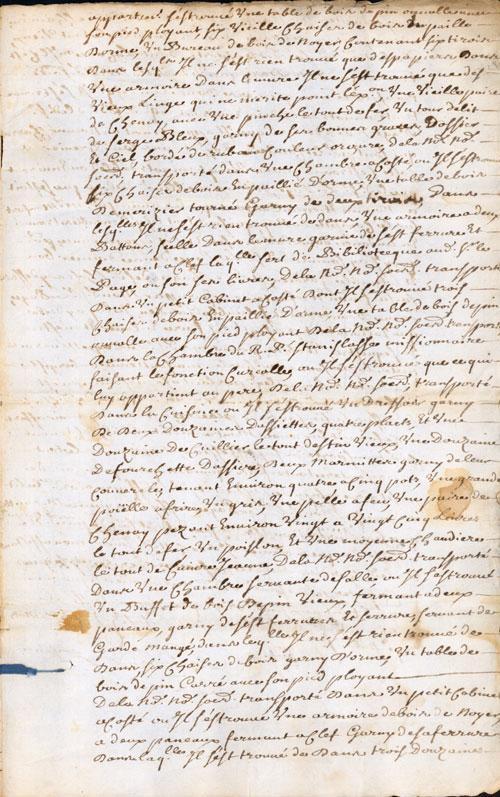 appartien. s'est trouvé Une table de bois de pin ovalle avec
son pied ployant six Vieille Chaises de bois en paille
Dorme, Un Bureau de bois de Noyer Contenant six tiroirs
Dans lesqls Il ne s'est rien trouvé que des papiers Dans
Une armoire Dans le mure Il ne s'est trouvé que des
Vieux Linges qui ne merite point Une Vieille paire
de Chenay, avec Une pincele le tout de fer Un tour de lit
de serge Bleux garny de ses bonnes graces, Dossier
Et Ciel, bordé de ruban Couleur De la Nd. Nd.
Soed. transporté dans Une Chambre a Costé ou Il s'est trouvé
six Chaises de bois Enpaillié Dorme, Une table de bois
De merizier tournée Garny de deux tiroirs, Dans
lesqls Il ne s'est rien trouvé de dans Une armoire a deux
Battans, Dans le mure garnie de s'est ferrure Et
fermant a Clef laqlle sert de Bibilioteque aud. Sr. le
Page, ou son ses livres, De la Nd. Nd. Soed. transporté
Dans Un petit Cabinet a Costé Dont Il s'est trouvé trois
Chaises de bois Enpaillié Dorme, Une table de bois de pin
ovalle avec son pied ployant De la Nd. Nd. Soed. transporté
Dans la Chambre du R. P. Stanislasse missionnaire
faisant la fonction Curialle, ou Il s'est trouvé que ce qui
luy appartint au pere, De la Nd. Nd. Soed. transporté
Dans la Cuisinne ou Il s'est trouvé Un Dressoir garny
De Deux Douzaines Dassiettes, quatre plats, Et Une
Douzaine de Cuillier le tout destin Vieux, Une Douzaine
de fourchette Dassier, Deux Marmittes garny de leur
Couvercles, tenant Environ quatre a Cinq pots, Une grande
poille a frire, Un gris, Une pelle a feu, Une paire de
Chenay pezant Environ Vingt a Vingt Cinq Livres
le tout de fer Un poislon Et Une moyenne Chaudiere
le tout de Cuivre Jeaune, De la Nd. Nd. Soed. transporté
Dans Une Chambre servante de salle ou Il s'est trouvé
Un Buffet de bois De pin Vieux, fermant a deux
paneaux garny de s'est ferrures Et serrure, servant de
Garde mangé, dans laqlle Il ne s'est rien trouvé de
Dans six Chaises de bois garny Dorme, Un table de
bois de pin Carré avec son pied ployant
De la Nd. Nd. Soed. transporté Dans Un petit Cabinet
a Costé ou Il s'est trouvé Une armoire de bois de Noyer
a deux paneaux fermant a Clef Garny de sa ferrure
Dans laq.lle Il s'est trouvé de Dans trois Douzaine